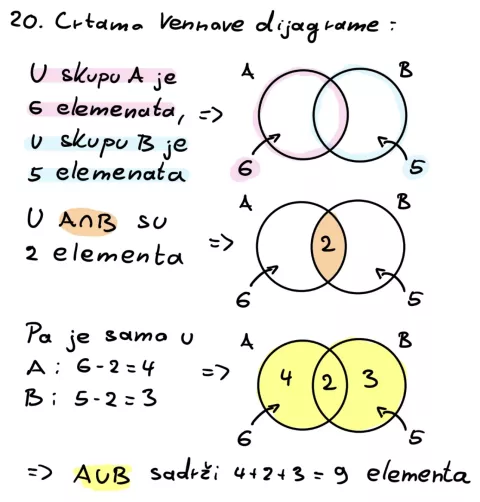 20. Crtamo Vennove dijagrame:
U skupu A je
6 elemenata, =>
U skupu B je
5 elemenata
A B
6 5
U A∩B su
2 elementa =>
A B
2
6 5
Pa je samo u
A: 6-2=4 =>
B: 5-2=3
A B
4 2 3
6 5
=> A∪B sadrži 4+2+3=9 elementa